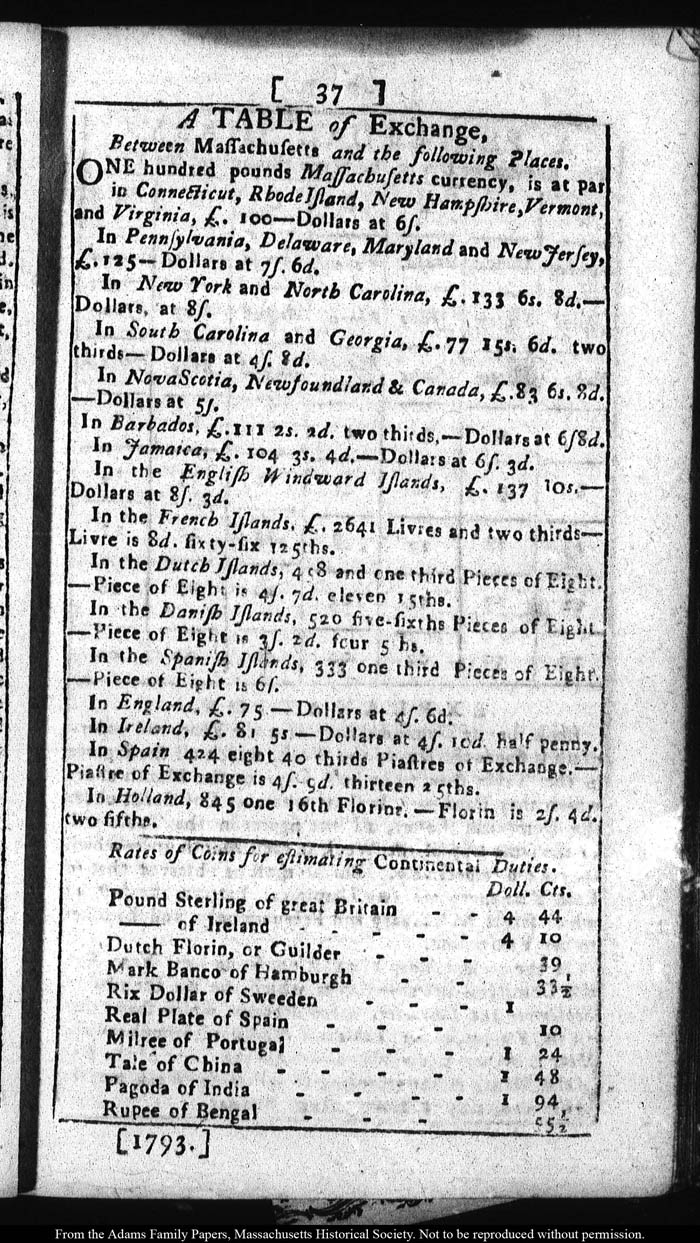 [ 37 ]
A TABLE of Exchange,
Between Maſſachuſetts and the following Places.
ONE hundred pounds Maſſachuſetts currency, is at par
in Connecticut, Rhode Iſland, New Hampſhire, Vermont,
and Virginia, £. 100—Dollars at 6ſ.
In Pennſylvania, Delaware, Maryland and New Jerſey,
£.125—Dollars at 7ſ. 6d.
In New York and North Carolina, £.133 6s. 8d.—
Dollars, at 8ſ.
In South Carolina and Georgia, £.77 15s. 6d. two
thirds—Dollars at 4ſ. 8d.
In Nova Scotia, Newfoundland & Canada, £.83 6s. 8d.
—Dollars at 5ſ.
In Barbados, £.111 2s. 2d. two thirds.—Dollars at 6ſ8d.
In Jamaica, £. 104 3s. 4d.—Dollars at 6ſ. 3d.
In the Engliſh Windward Iſlands, £. 137 10s.—
Dollars at 8ſ. 3d.
In the French Iſlands, £. 2641 Livres and two thirds—
Livre is 8d. ſixty-ſix 125ths.
In the Dutch Iſlands, 4c8 and one third Pieces of Eight.
—Piece of Eight is 4ſ. 7d. eleven 15ths.
In the Daniſh Iſlands, 520 five-ſixths Pieces of Eight
—Piece of Eight is 3ſ. 2d. four 5 hs.
In the Spaniſh Iſlands, 333 one third Pieces of Eight.
—Piece of Eight is 6ſ.
In England, £. 75 —Dollars at 4ſ. 6d.
In Ireland, £. 81 5s—Dollars at 4ſ. 10d. half penny.
In Spain 424 eight 40 thirds Piaſtres of Exchange.—
Piaſtre of Exchange is 4ſ. 9d. thirteen 25ths.
In Holland, 845 one 16th Florins.—Florin is 2ſ. 4d.
two fifths.
Rates of Coins for eſtimating Continental Duties.
Doll. Cts.
Pound Sterling of great Britain - - 4 44
—— of Ireland - - - - 4 10
Dutch Florin, or Guilder - - - 39
Mark Banco of Hamburgh - - 33½
Rix Dollar of Sweeden - - - 1
Real Plate of Spain - - - 10
Milree of Portugal - - - 1 24
Tale of China - - - - 1 48
Pagoda of India - - - - 1 94
Rupee of Bengal - - - 55½
[1793.]
From the Adams Family Papers, Massachusetts Historical Society. Not to be reproduced without permission.